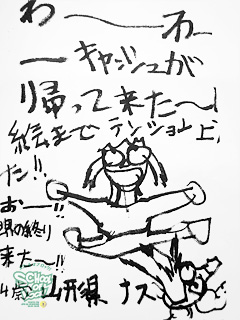 わ〜〜ホー
ーキャッシュが
帰って来た〜!
絵までテンション上
た!!
お〜!!
の終り
来た〜!!
4歳 山形県 ナス